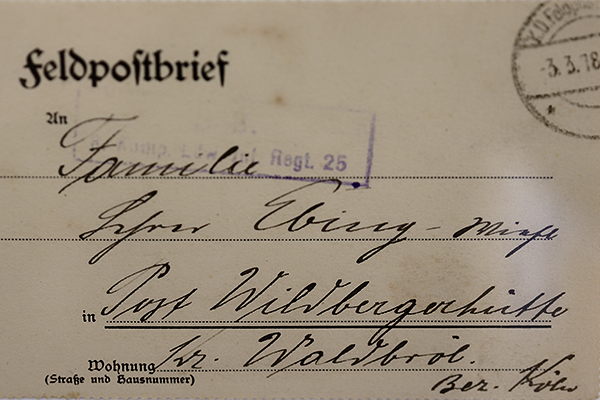 Feldpostbrief
K.D.Feldp
-3.3.18
An
Familie
Regt. 25
Ebing -
in Post Wildbergerhütte
Wohnung Kr. Waldbröl.
(Straße und Hausnummer)
Bez. Köln